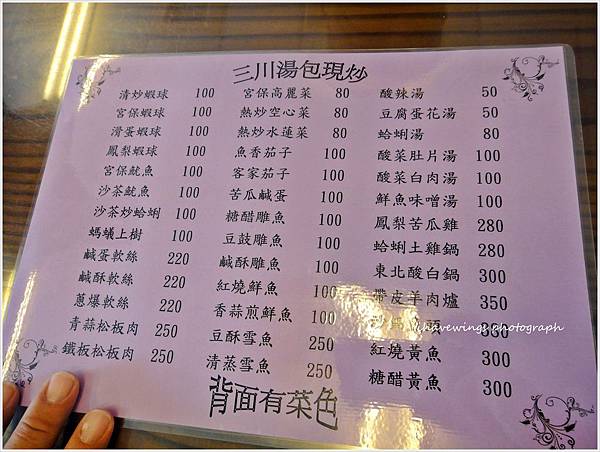 三川湯包現炒
清炒蝦球 100
宮保蝦球 100
滑蛋蝦球 100
鳳梨蝦球 100
宮保魷魚 100
沙茶魷魚 100
沙茶炒蛤蜊 100
螞蟻上樹 100
鹹蛋軟絲 220
鹹酥軟絲 220
蔥爆軟絲 220
青蒜松板肉 250
鐵板松板肉 250
宮保高麗菜 80
熱炒空心菜 80
熱炒水蓮菜 80
魚香茄子 100
客家茄子 100
苦瓜鹹蛋 100
糖醋雕魚 100
豆鼓雕魚 100
鹹酥雕魚 100
紅燒鮮魚 100
香蒜煎鮮魚 100
豆酥雪魚 250
清蒸雪魚 250
酸辣湯 50
豆腐蛋花湯 50
蛤蜊湯 80
酸菜肚片湯 100
酸菜白肉湯 100
鮮魚味噌湯 100
鳳梨苦瓜雞 280
蛤蜊土雞鍋 280
東北酸白鍋 300
帶皮羊肉爐 350
頭 350
紅燒黃魚 300
糖醋黃魚 300
背面有菜色
ihavewings photograph